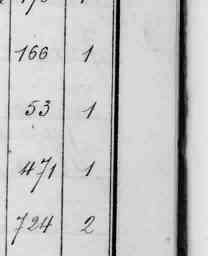 166 1
53 1
471 1
724 2